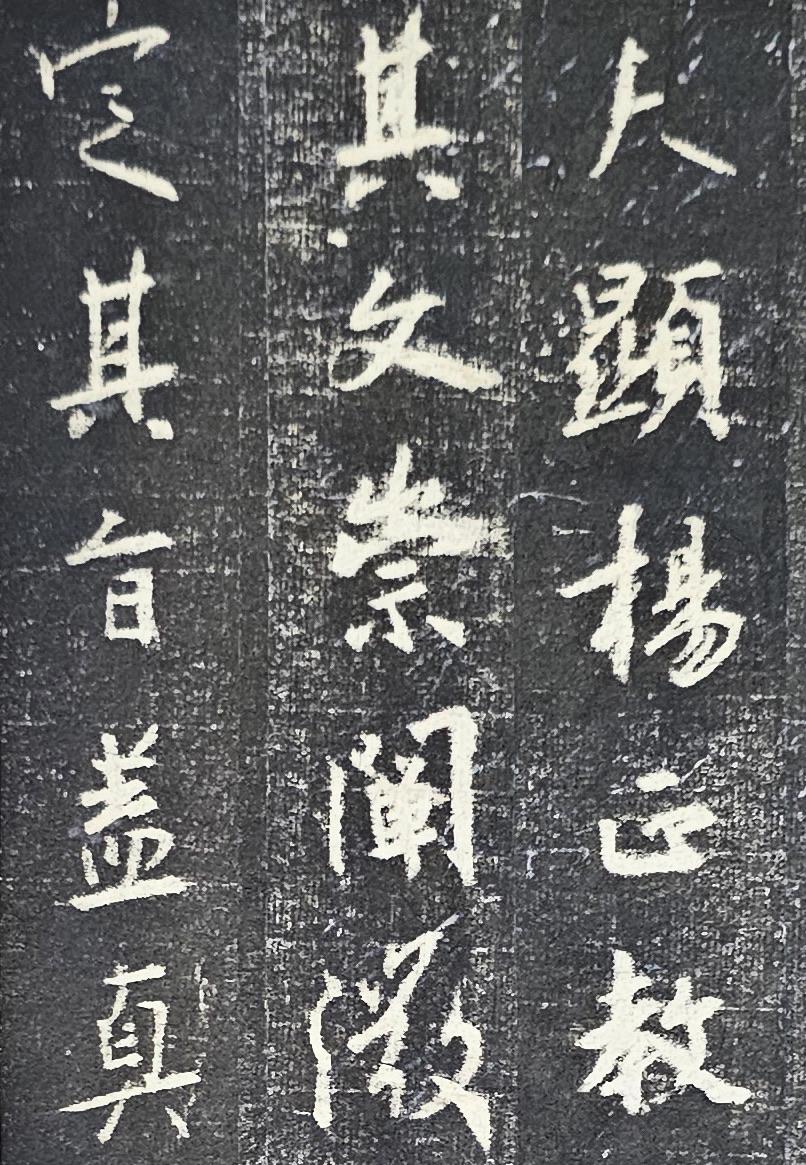 夫顯揚正教
其文崇闡微
定其旨蓋真